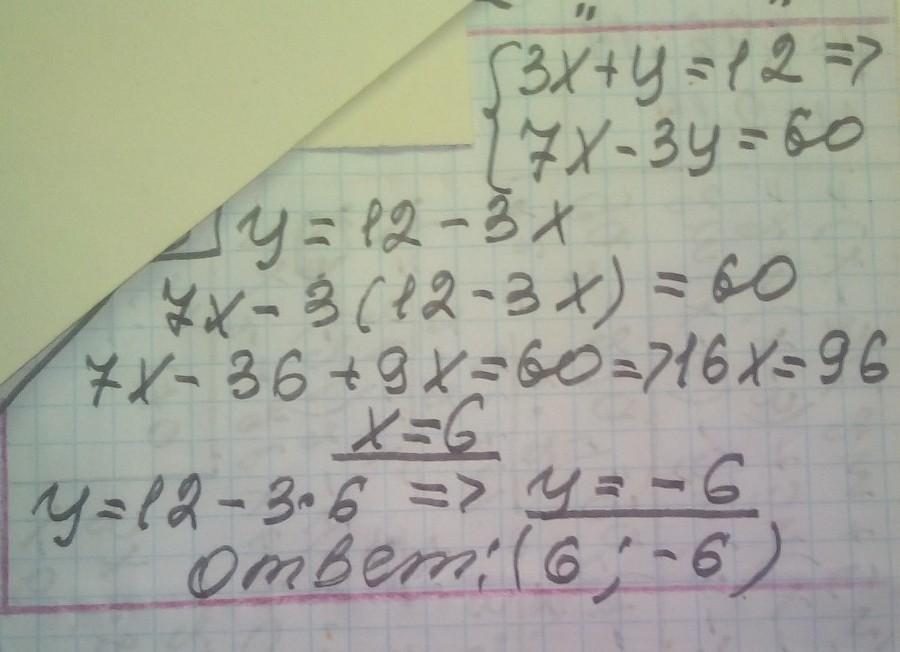 {3x+y=12 =>
7x-3y=60
y=12-3x
7x-3(12-3x)=60
7x-36+9x=60=>16x=96
x=6
y=12-3·6 => y=-6
ответ:(6;-6)